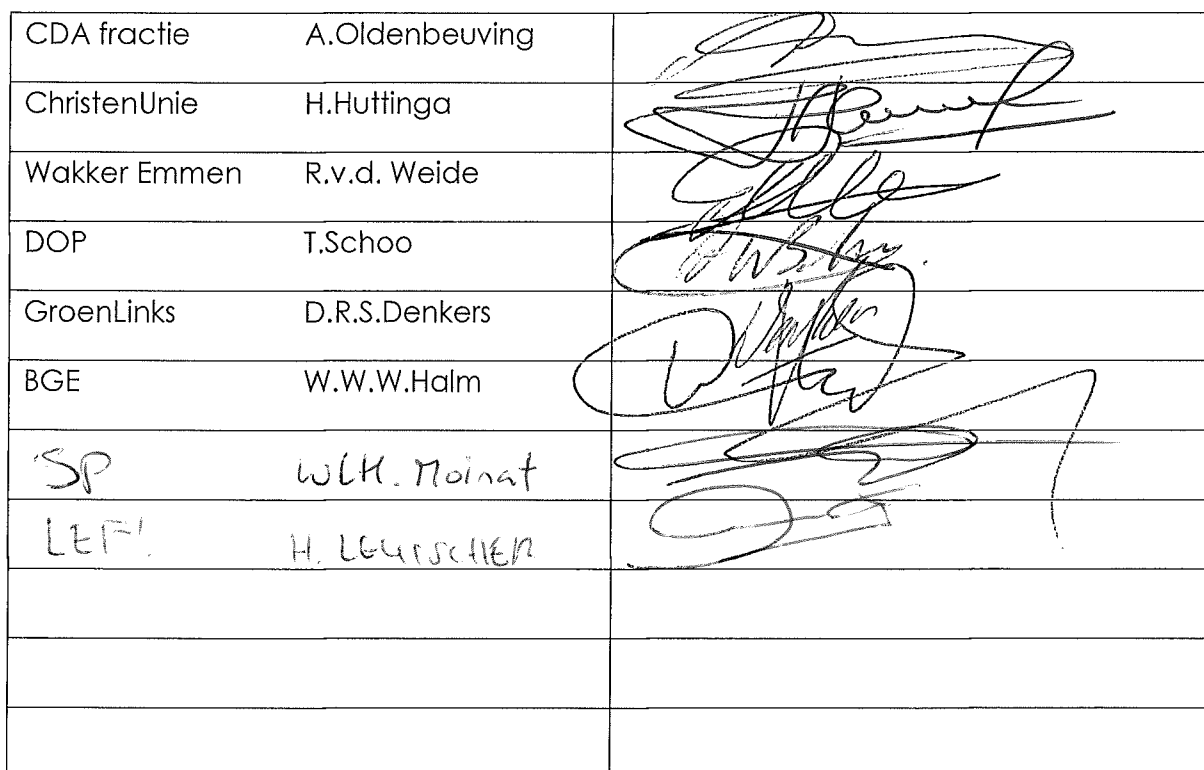 CDA fractie A.Oldenbeuving
ChristenUnie H.Huttinga
Wakker Emmen R.v.d. Weide
DOP T.Schoo
GroenLinks D.R.S.Denkers
BGE W.W.W.Halm
SP WLH. Moinat
LEF! H. LEUTSCHER